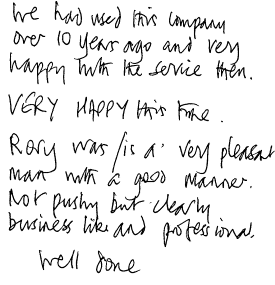 We had used this company
over 10 years ago and very
happy with the service then.
VERY HAPPY this time.
Rory was/is a very pleasant
man with a good manner.
Not pushy but clearly
business like and professional.
Well done